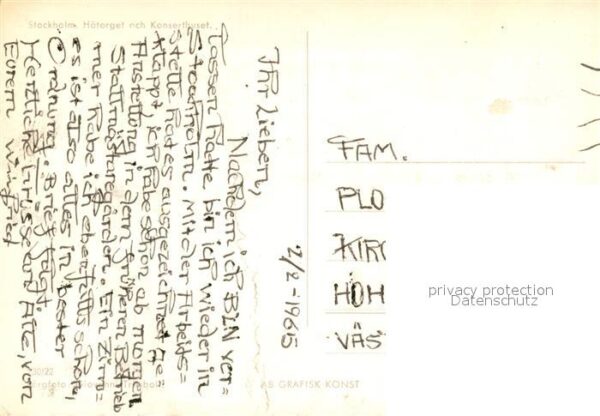 Stockholm. Hötorget och Konserthuset.
2/2-1965
Ihr Lieben,
Nachdem ich BLN ver=
lassen hatte bin ich wieder in
Stockholm. Mit der Arbeits=
stelle hat es ausgezeichnet ge=
klappt ich habe schon ab morgen
Anstellung in dem früheren Betrieb
Stallmästaregården. Ein Zim=
mer habe ich ebenfalls schon,
es ist also alles in bester
Ordnung. Brief folgt.
Herzliche Grüsse an Alle, von
Eurem Winfried
FAM.
PLO
KIR
HOH
VÄS
privacy protection
Datenschutz
30/22
AB GRAFISK KONST